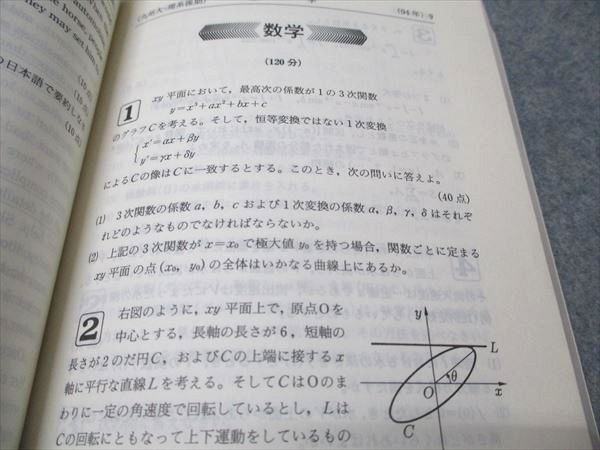 (九州大-理系後期)
(94年) 9
数学
(120分)
1 xy平面において,最高次の係数が1の3次関数
y=x³+ax²+bx+c
のグラフCを考える。そして,恒等変換ではない1次変換
x'=αx+βy
y'=γx+δy
によるCの像はCに一致するとする。このとき,次の問いに答えよ。
(40点)
(1) 3次関数の係数a,b,cおよび1次変換の係数α,β,γ,δはそれぞ
れどのようなものでなければならないか。
(2) 上記の3次関数がx=x₀で極大値y₀を持つ場合,関数ごとに定まる
xy平面の点(x₀, y₀)の全体はいかなる曲線上にあるか。
2 右図のように,xy平面上で,原点Oを
中心とする,長軸の長さが6,短軸の
長さが2のだ円C,およびCの上端に接するx
軸に平行な直線Lを考える。そしてCはOのま
わりに一定の角速度で回転しているとし,Lは
Cの回転にともなって上下運動をしているもの
y
L
θ
O
x
C
the horse, pe
ney may set hum
の日本語で要約しな
(10点)